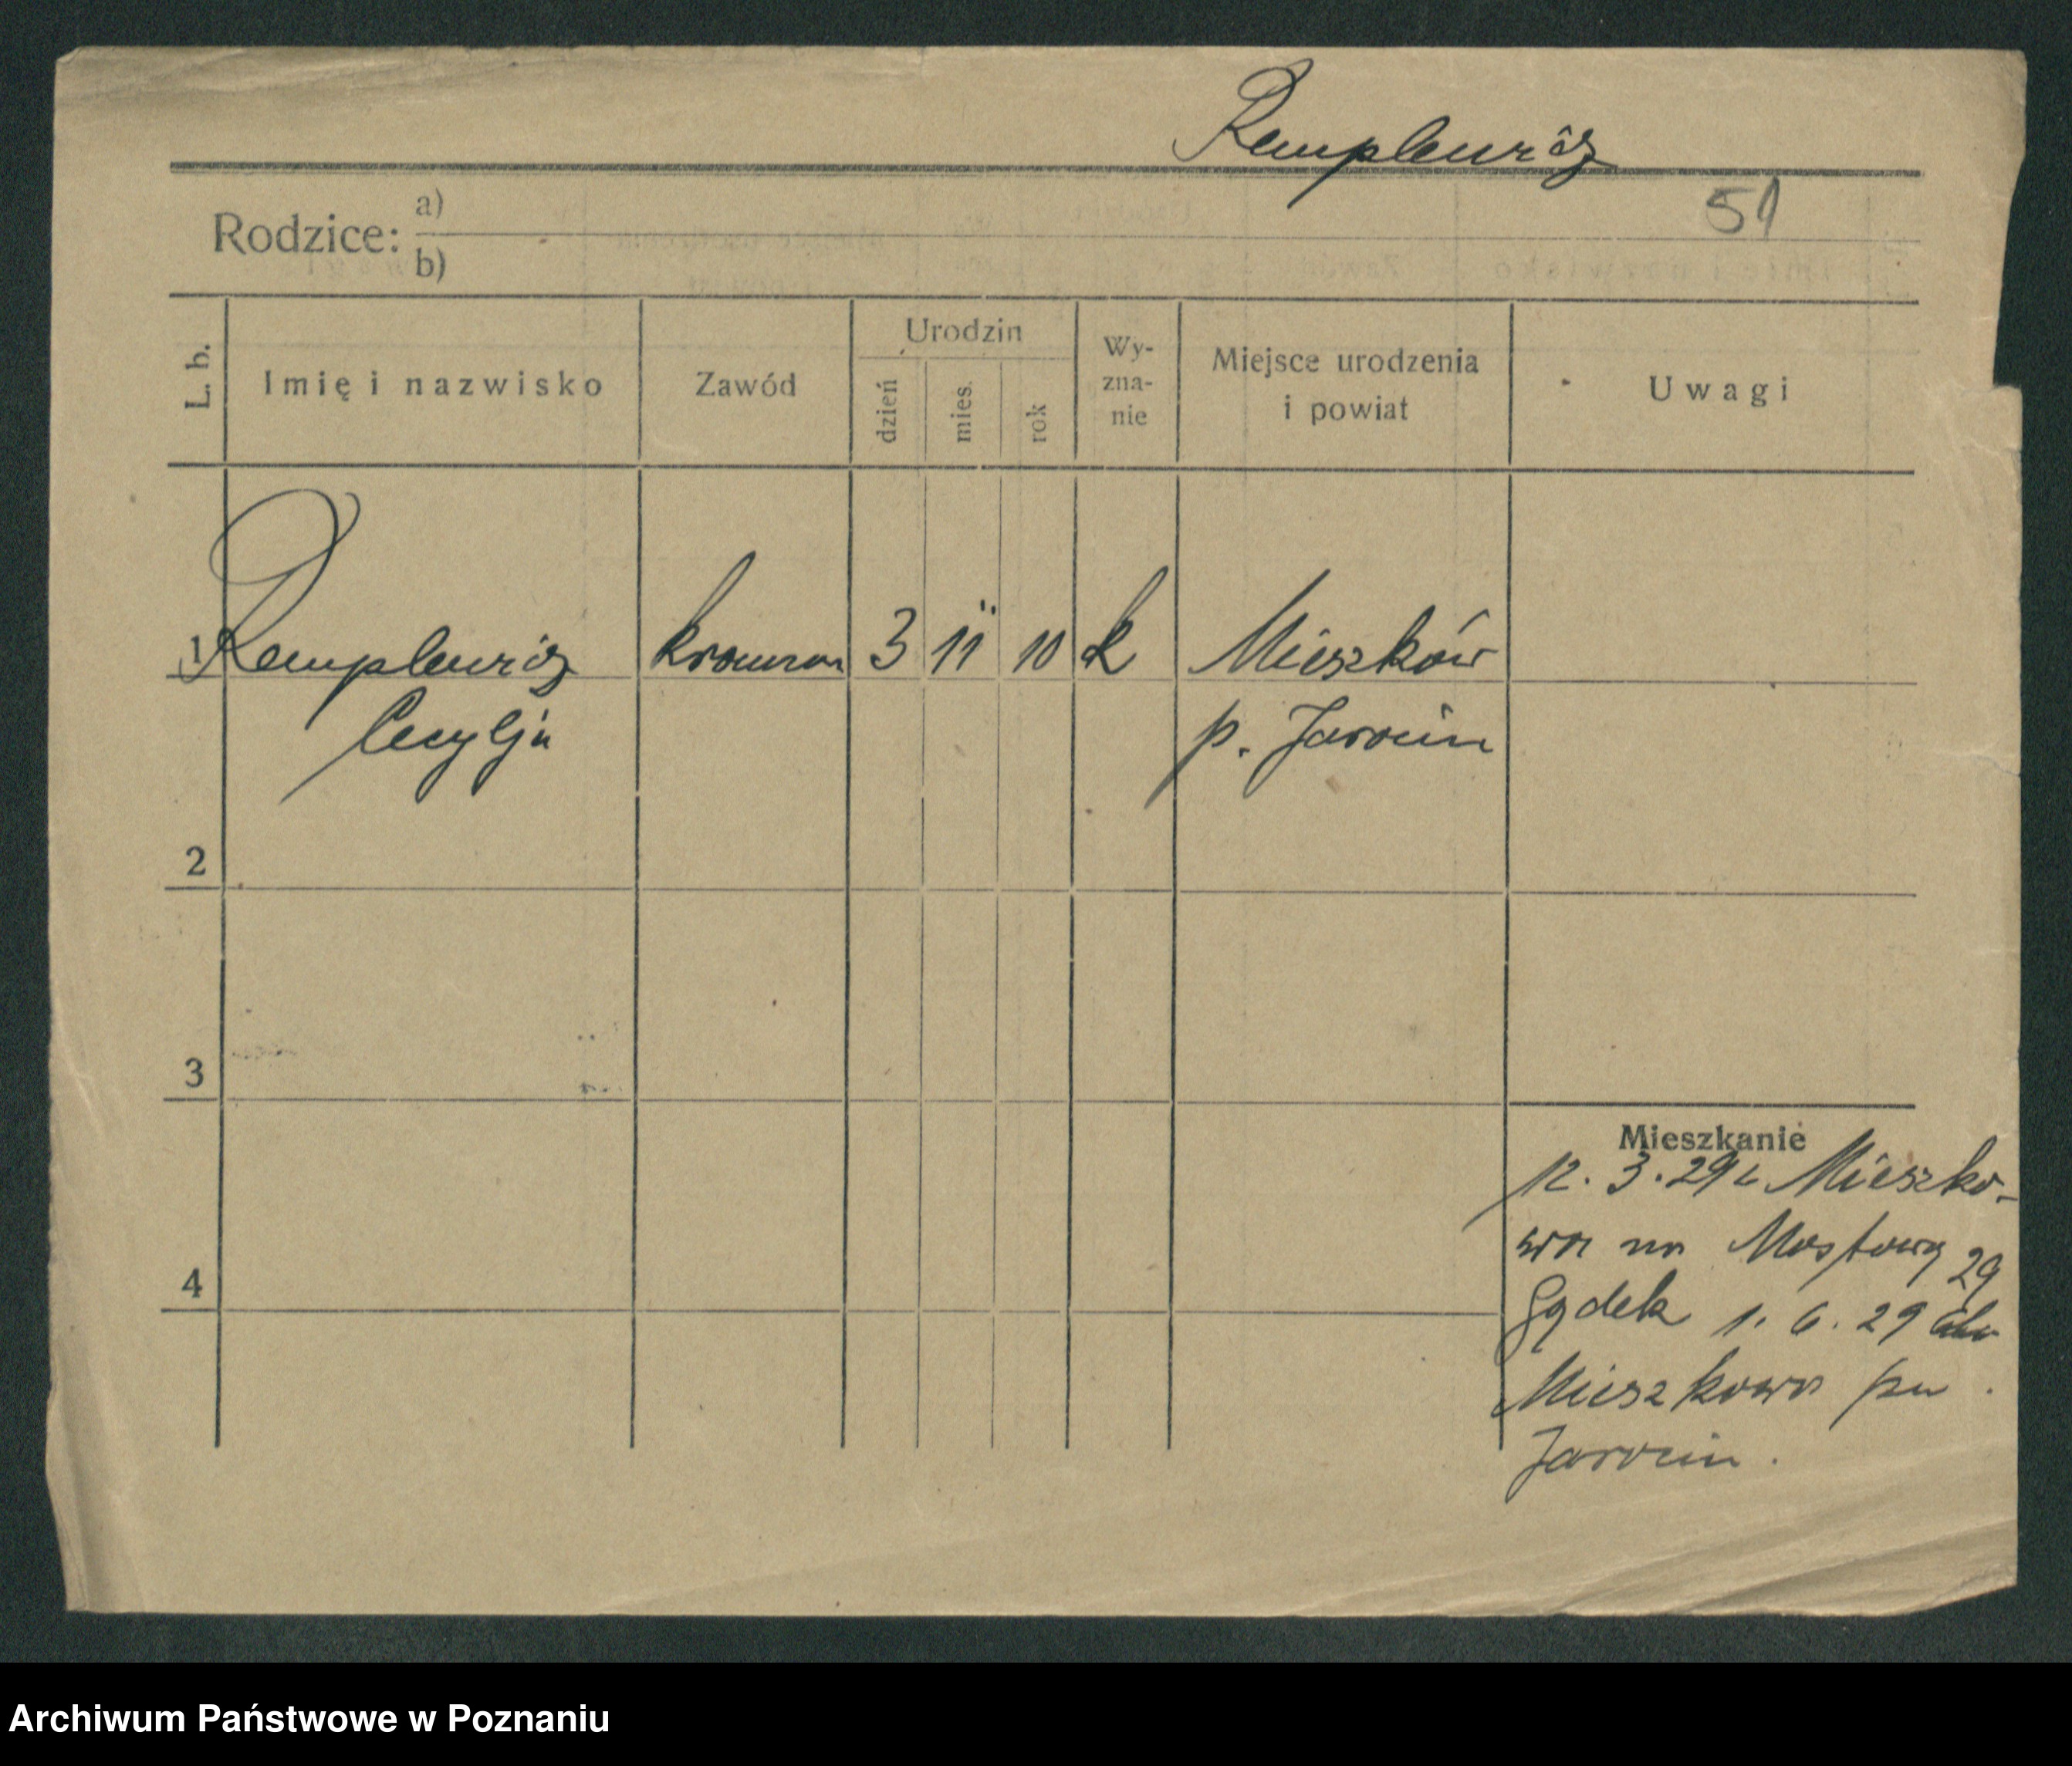 Remplewicz
51
Rodzice: a)
b)
L. b.
Imię i nazwisko
Zawód
Urodzin
dzień
mies.
rok
Wy-
zna-
nie
Miejsce urodzenia
i powiat
Uwagi
1 Remplewicz krawcowa 3 11 10 k Mieszków
Cecylja p. Jarocin
2
3
4
Mieszkanie
12. 3. 29 z Mieszko-
wa na Mostową 29
1. 6. 29 do
Mieszkowa
Jarocin.
Archiwum Państwowe w Poznaniu